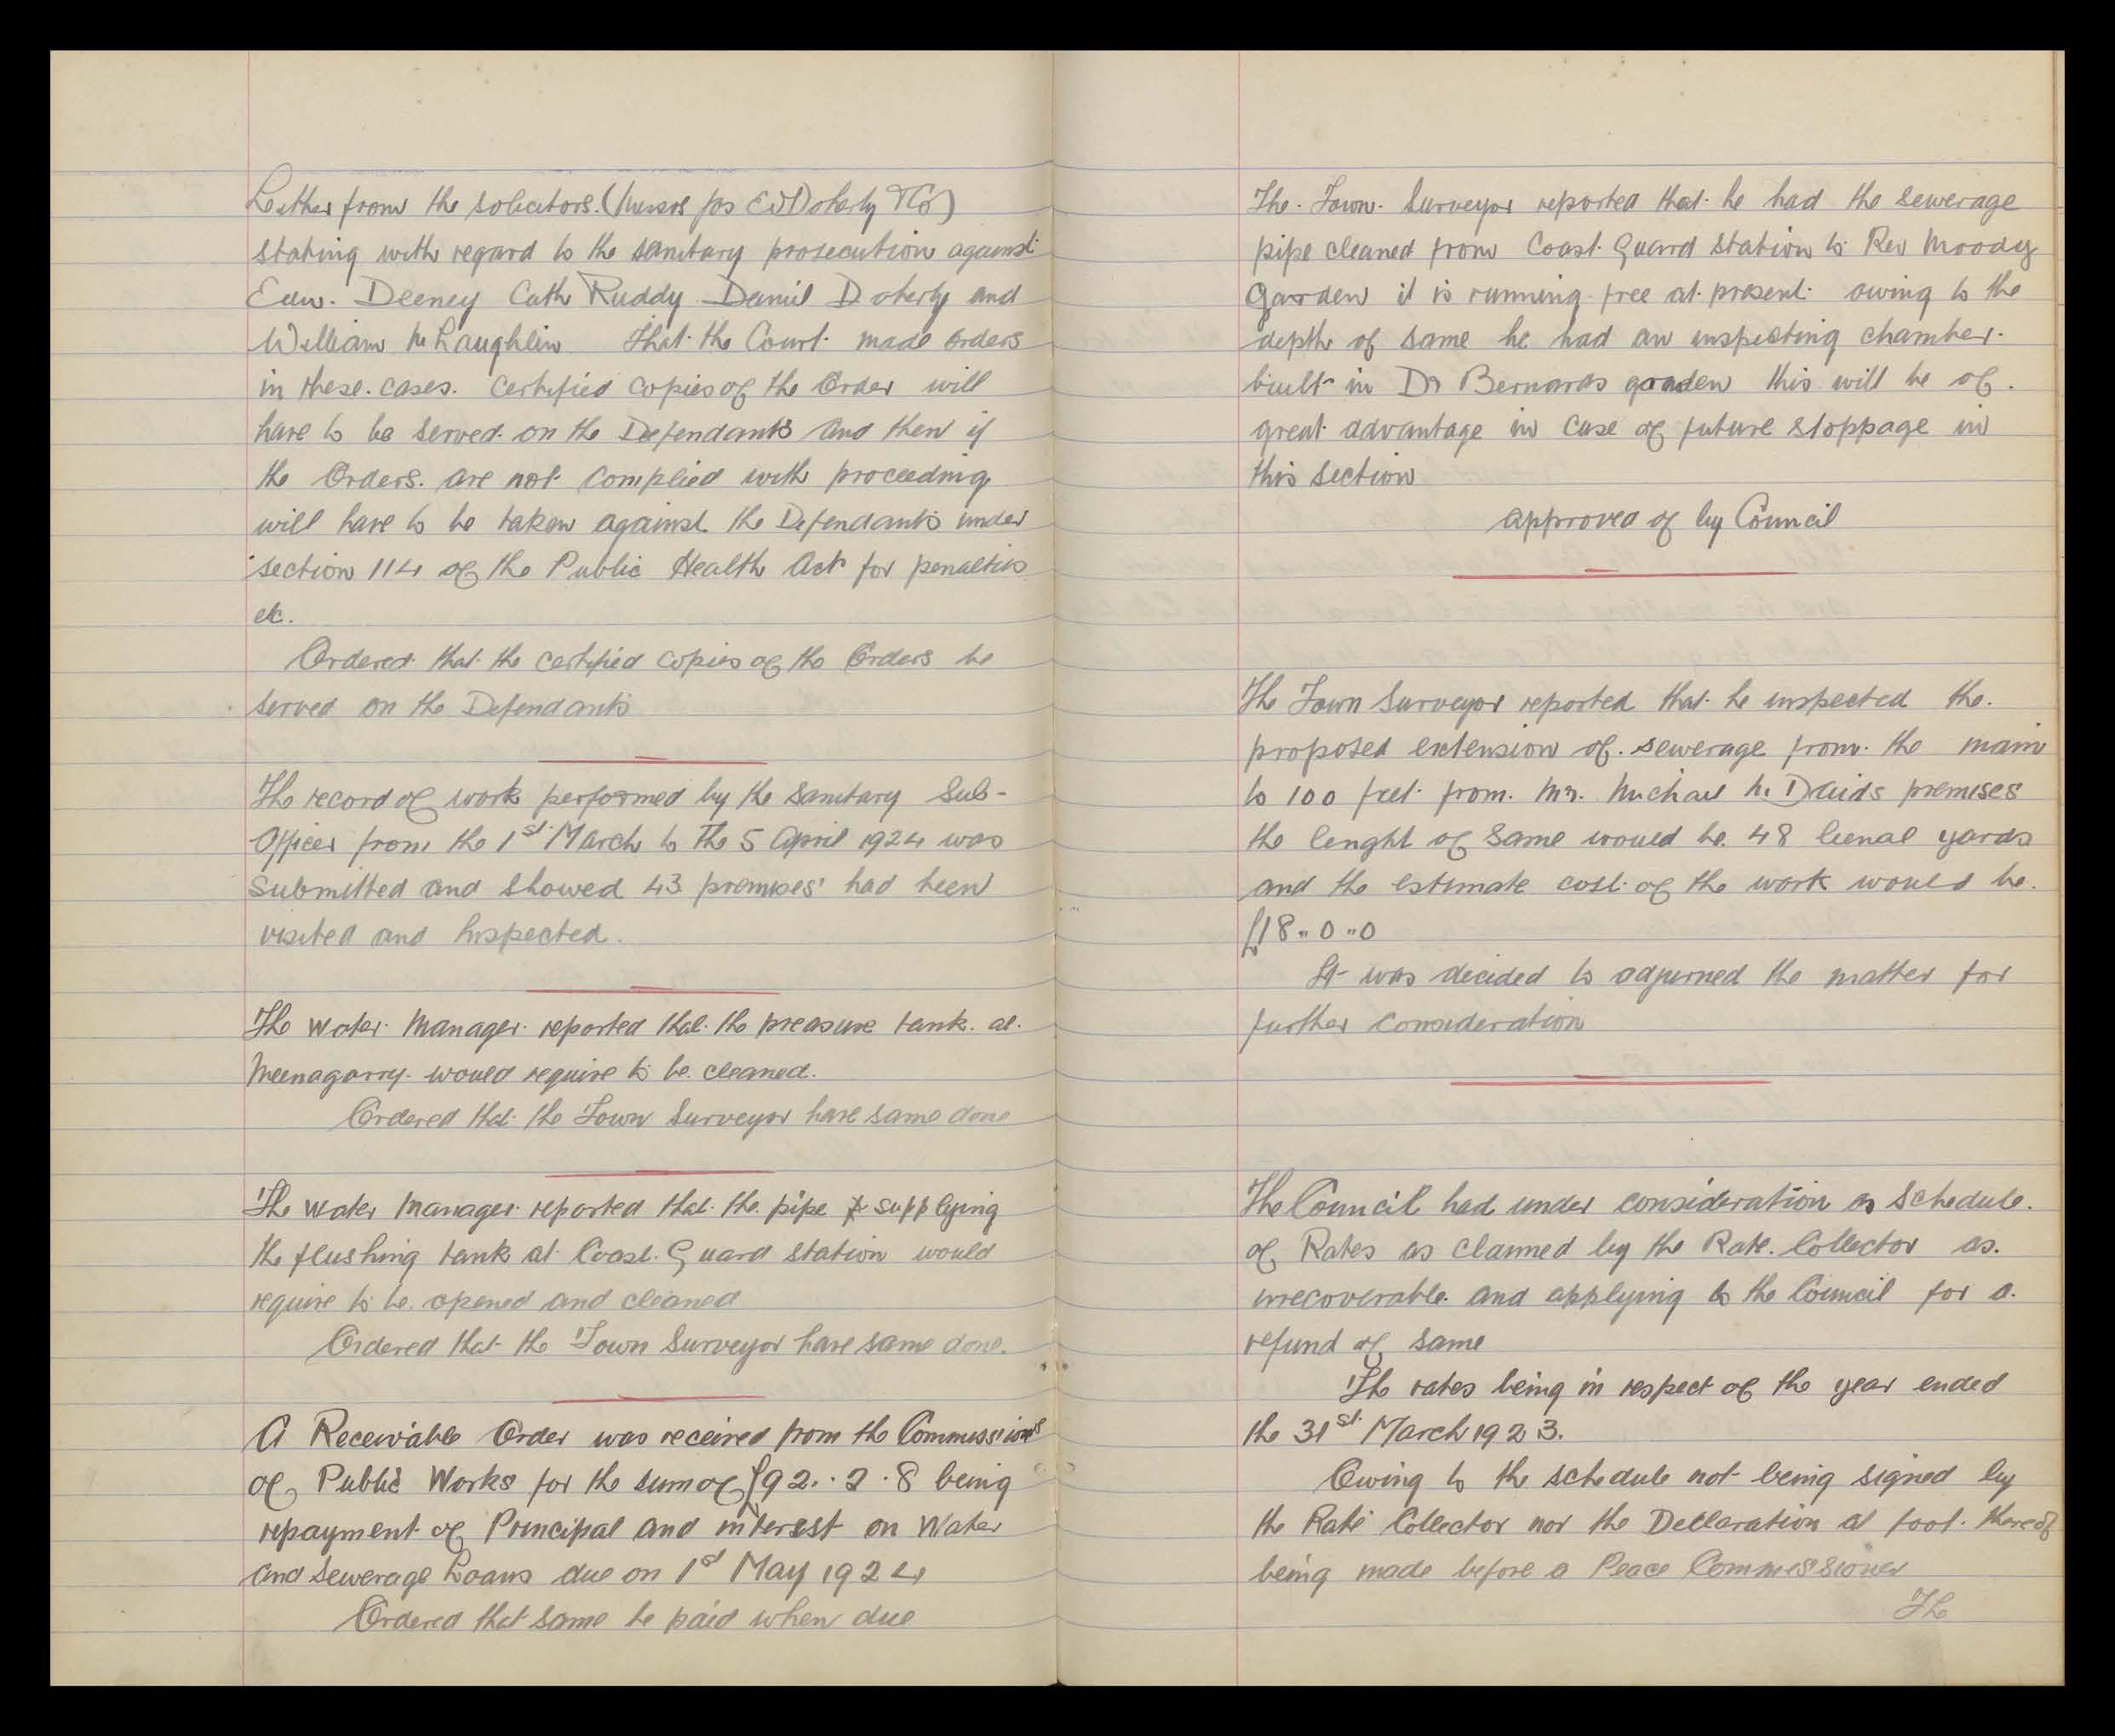 Letter from the solicitors. (Messrs Jas E O'Doherty & Co)
stating with regard to the sanitary prosecution against
Edw. Deeney Cath Ruddy Daniel Doherty and
William McLaughlin That the Court made orders
in these cases. Certified copies of the Order will
have to be served on the Defendants and then if
the Orders are not complied with proceeding
will have to be taken against the Defendants under
section 114 of the Public Health Act for penalties
etc.
Ordered that the certified copies of the Orders be
served on the Defendants
The record of work performed by the Sanitary Sub-
Officer from the 1st March to the 5 April 1924 was
submitted and showed 43 premises had been
visited and Inspected.
The Water Manager reported that the preasure tank at
Meenagorry would require to be cleaned.
Ordered that the Town Surveyor have same done
The Water Manager reported that the pipe supplying
the flushing tank at Coast Guard Station would
require to be opened and cleaned
Ordered that the Town Surveyor have same done.
A Receivable Order was received from the Commissions
of Public Works for the sum of £92..2.8 being
repayment of Principal and interest on Water
and Sewerage Loans due on 1st May 1924
Ordered that same be paid when due
The Town Surveyor reported that he had the sewerage
pipe cleaned from Coast Guard Station to Rev Moody
Garden it is running free at present owing to the
depth of same he had an inspecting chamber
built in Dr Bernards garden this will be of
great advantage in case of future stoppage in
this section
approved of by Council
The Town Surveyor reported that he inspected the
proposed extension of sewerage from the main
to 100 feet from Mr. Michael Mc Daids premises
the lenght of same would be 48 lienal yards
and the estimate cost of the work would be
£18"0"0
It was decided to adjurned the matter for
further consideration
The Council had under consideration a Schedule
of Rates as claimed by the Rate Collector as
irrecoverable and applying to the Council for a
refund of same
The rates being in respect of the year ended
the 31st March 1923.
Owing to the schedule not being signed by
the Rate Collector nor the Declaration at foot thereof
being made before a Peace Commissioner
The